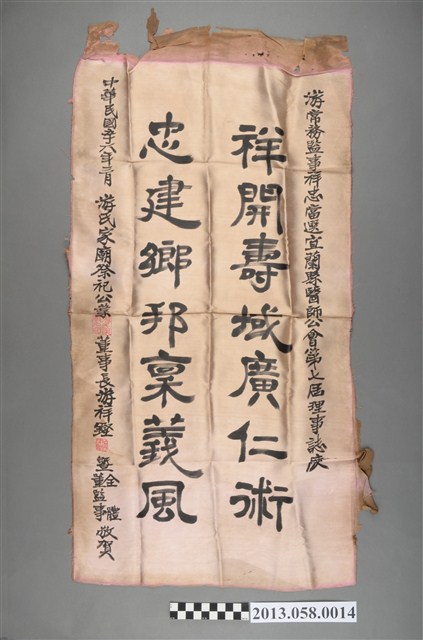 游常務監事祥志當選宜蘭縣醫師公會第七屆理事誌慶
祥開壽域廣仁術
忠建鄉邦稟義風
中華民國五十六年二月 游氏家廟祭祀公業 董事長游祥鏗 暨全體董監事 敬賀
2013.058.0014